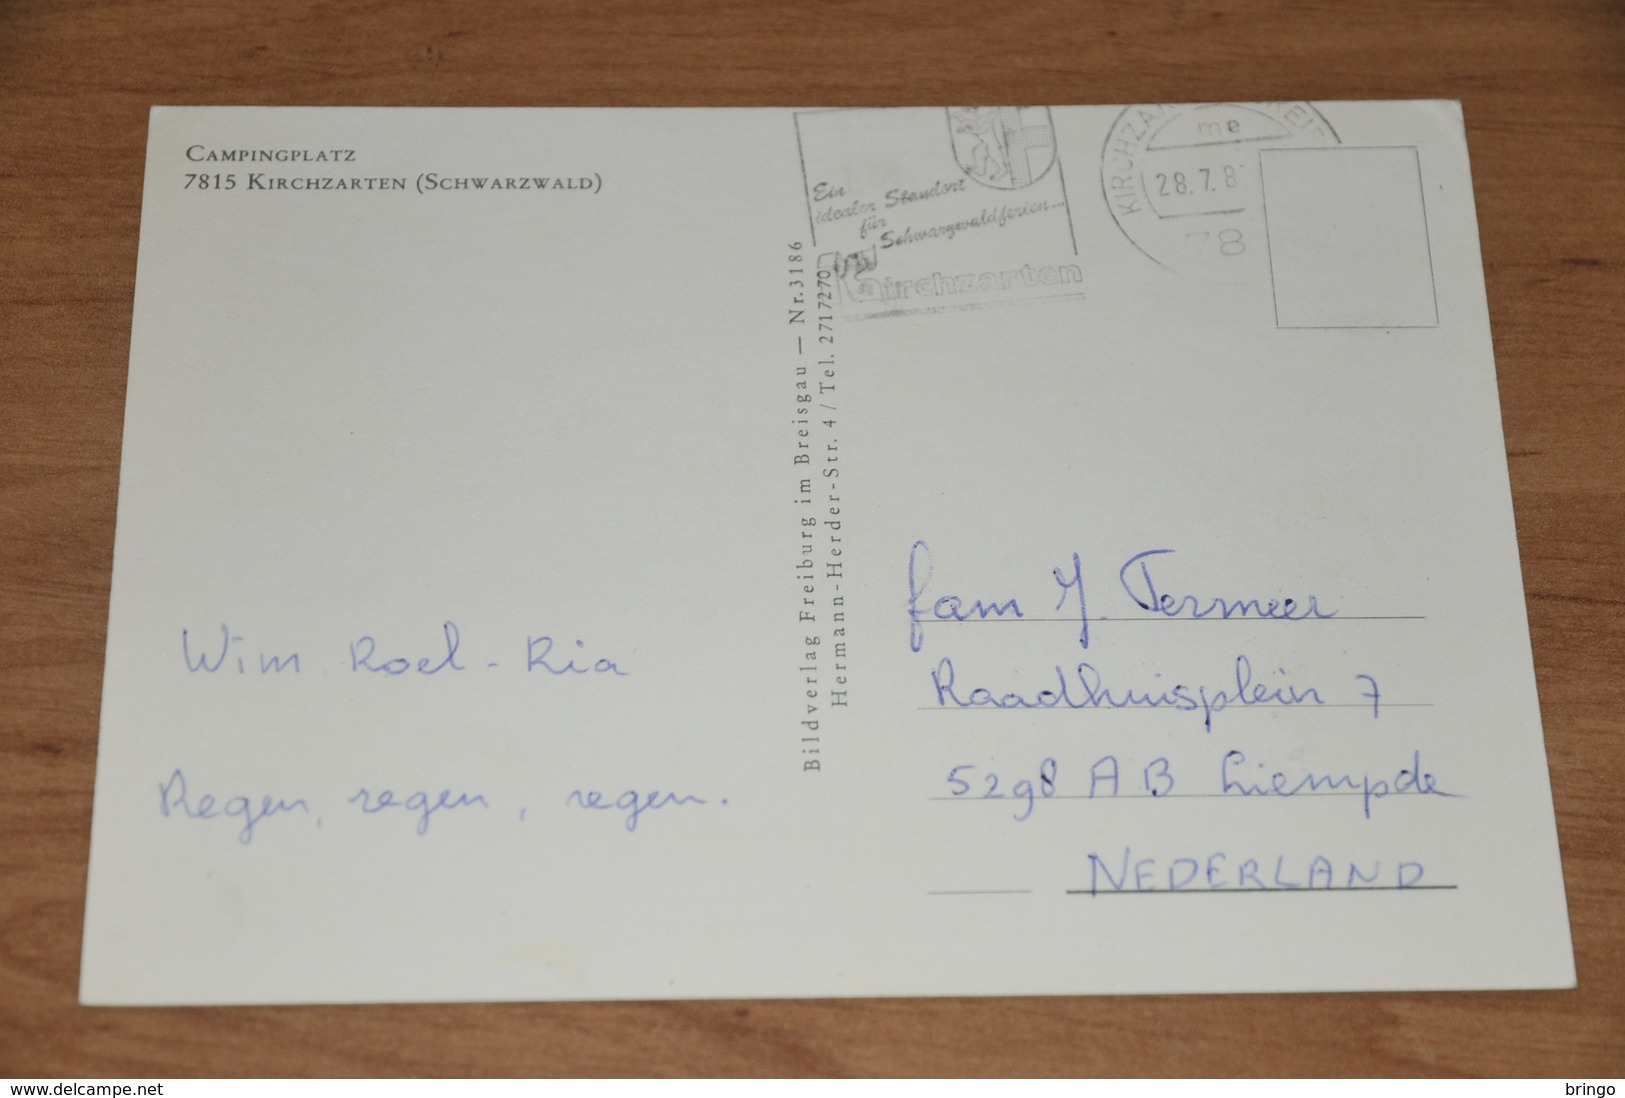 CAMPINGPLATZ
7815 KIRCHZARTEN (SCHWARZWALD)
Ein
idealer Standort
für
Schwarzwaldferien...
Kirchzarten
me
28.7.8
78
Bildverlag Freiburg im Breisgau — Nr. 3186
Hermann-Herder-Str. 4 / Tel. 2717270
Wim Roel - Ria
Regen, regen, regen.
fam J. Termeer
Raadhuisplein 7
5298 AB Liempde
NEDERLAND
www.delcampe.net
bringo